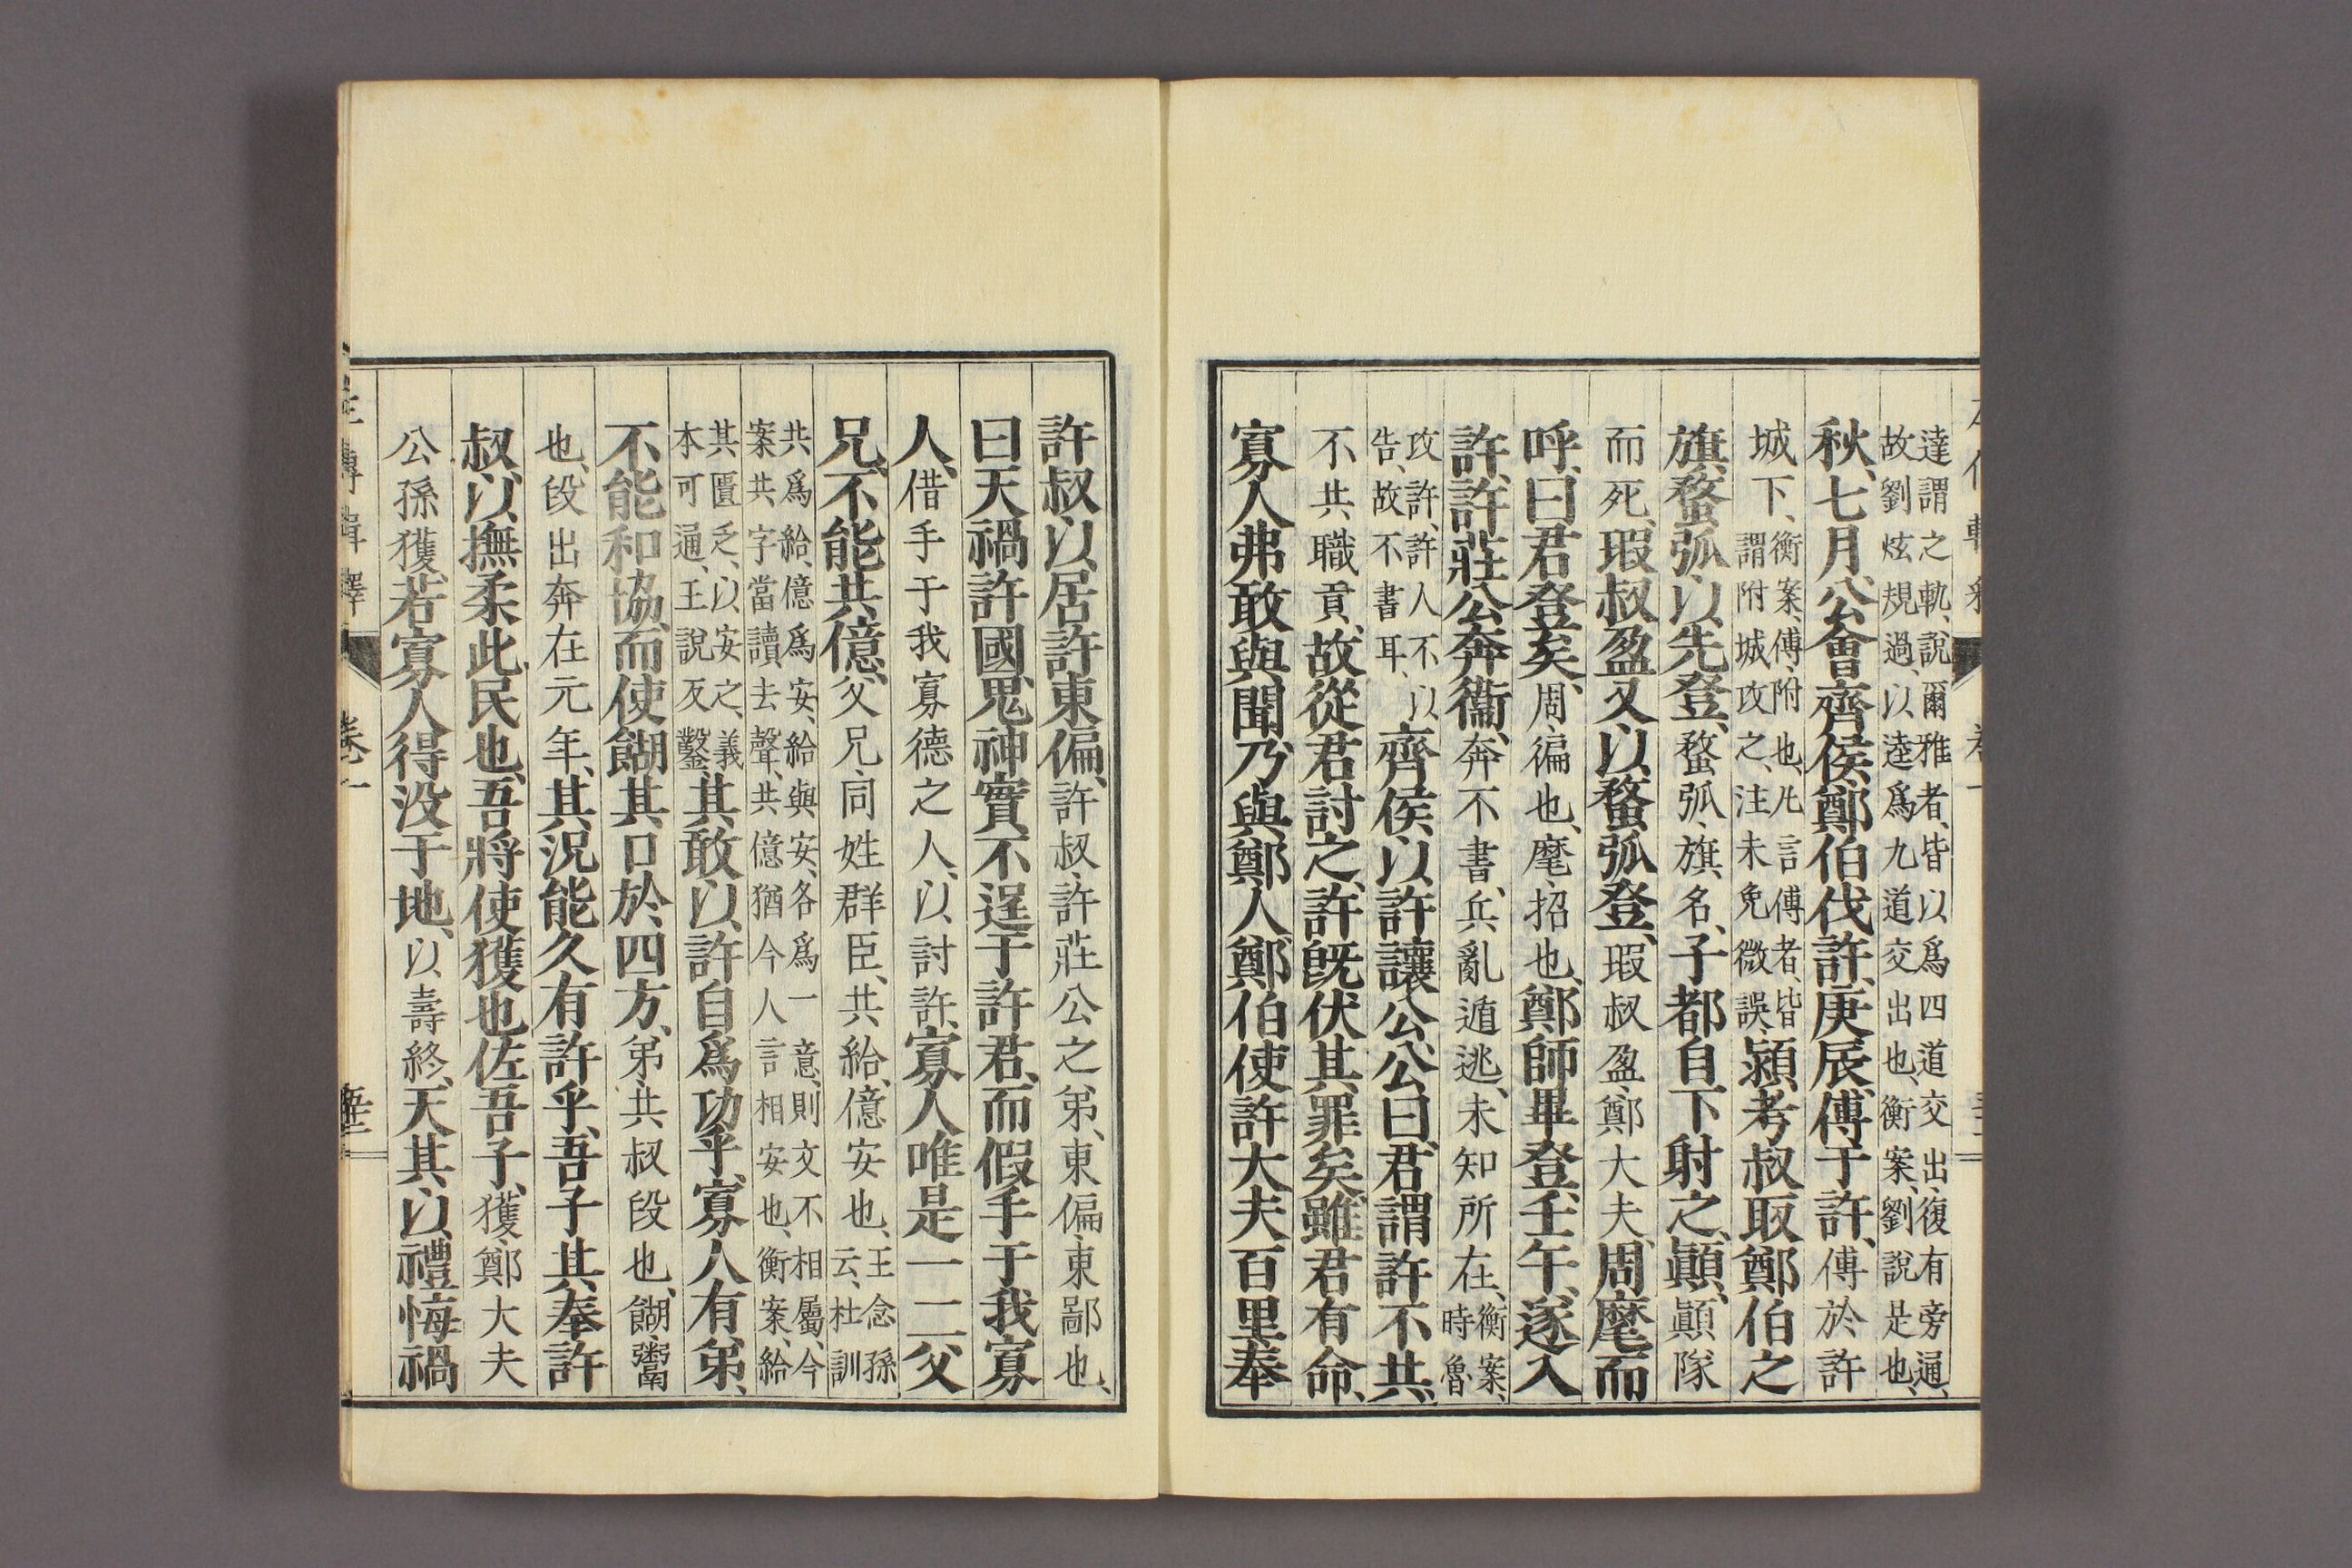 達謂之軌、說爾雅者、皆以爲四道交出、復有旁通、
故劉炫規過、以逵爲九道交出也、衡案、劉說是也、
秋、七月、公會齊侯、鄭伯伐許、庚辰、傅于許、傅於許
城下、衡案、傅、附也、凡言傅者、皆
謂附城攻之、注未免微誤、潁考叔取鄭伯之
旗、蝥弧、以先登、蝥弧、旗名、子都自下射之、顚、顚隊
而死、瑕叔盈又以蝥弧登、瑕叔盈、鄭大夫、周麾而
呼、曰君登矣、周、徧也、麾、招也、鄭師畢登、壬午、遂入
許、許莊公奔衞、奔不書、兵亂遁逃、未知所在、衡案、
時魯
攻許、許人不以
告、故不書耳、齊侯以許讓公、公曰、君謂許不共、
不共職貢、故從君討之、許旣伏其罪矣、雖君有命、
寡人弗敢與聞、乃與鄭人、鄭伯使許大夫百里奉
許叔、以居許東偏、許叔、許莊公之弟、東偏、東鄙也、
曰天禍許國、鬼神實不逞于許君、而假手于我寡
人、借手于我寡德之人、以討許、寡人唯是一二父
兄、不能共億、父兄、同姓群臣、共、給、億、安也、王念孫
云、杜訓
共爲給、億爲安、給與安、各爲一意、則文不相屬、今
案共字當讀去聲、共億猶今人言相安也、衡案、給
其匱乏、以安之、義
本可通、王說反鑿、其敢以許自爲功乎、寡人有弟、
不能和協、而使餬其口於四方、弟、共叔段也、餬、鬻
也、段出奔在元年、其況能久有許乎、吾子其奉許
叔、以撫柔此民也、吾將使獲也佐吾子、獲、鄭大夫
公孫獲、若寡人得沒于地、以壽終、天其以禮悔禍
左傳輯釋 卷一